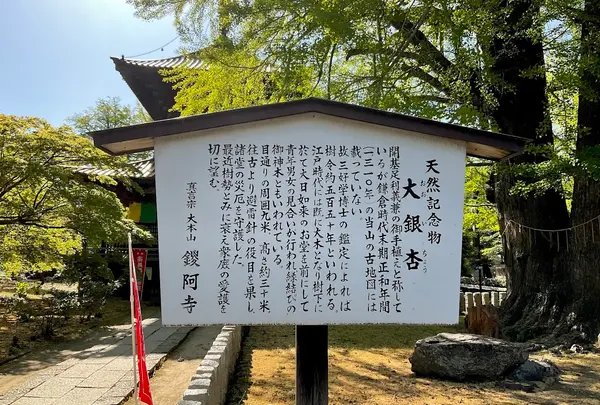 天然記念物
大銀杏
おお
いちょう
開基足利義兼の御手植と称して
いるが鎌倉時代末期正和年間
(一三一〇年)の当山の古地図には
載っていない。
故三好学博士の鑑定によれば
樹令約五百五十年といわれる
江戸時代には既に大木となり樹下に
於て大日如来のお堂を前にして
青年男女の見合いが行われ縁結びの
御神木ともいわれている。
目通りの周囲八米、高さ約三十米
往古より避雷針の役目を果し
諸堂の災厄を守護した
最近樹勢とみに衰え衆庶の愛護を
切に望む。
真言宗 大本山 鑁阿寺